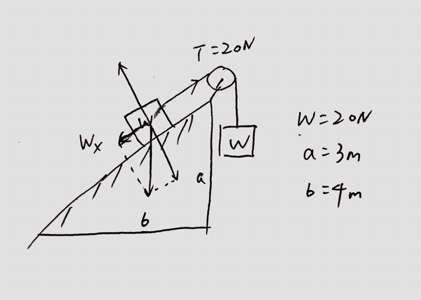 T=20N
W
Wx
W
a
b
W=20N
a=3m
b=4m